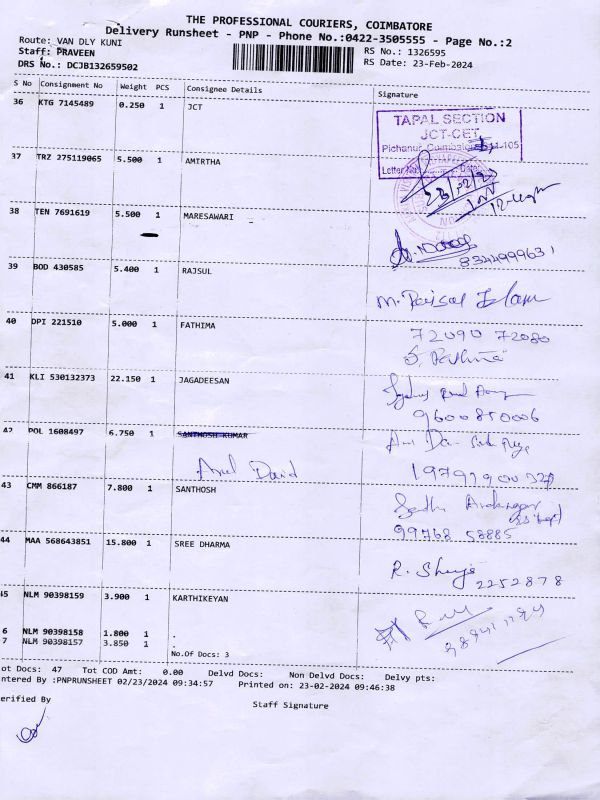 THE PROFESSIONAL COURIERS, COIMBATORE
Delivery Runsheet - PNP - Phone No.:0422-3505555 - Page No.:2
Route: VAN DLY KUNI
Staff: PRAVEEN
DRS No.: DCJB132659502
RS No.: 1326595
RS Date: 23-Feb-2024
S No Consignment No Weight PCS Consignee Details Signature
36 KTG 7145489 0.250 1 JCT
TAPAL SECTION
JCT-CET
Pichanur, Coimbatore-641-105
37 TRZ 275119065 5.500 1 AMTRTHA
38 TEN 7691619 5.500 1 MARESAWARI
39 BOD 430585 5.400 1 RAJSUL
40 DPI 221510 5.000 1 FATHIMA
72090 72080
41 KLI 530132373 22.150 1 JAGADEESAN
9600850006
42 POL 1608497 6.750 1 SANTHOSH KUMAR
Anil David
43 CMM 866187 7.800 1 SANTHOSH
99768 58885
44 MAA 568643851 15.800 1 SREE DHARMA
2252878
45 NLM 90398159 3.900 1 KARTHIKEYAN
6 NLM 90398158 1.800 1 .
7 NLM 90398157 3.850 1 .
No.Of Docs: 3
ot Docs: 47 Tot COD Amt: 0.00 Delvd Docs: Non Delvd Docs: Delvy pts:
ntered By :PNPRUNSHEET 02/23/2024 09:34:57 Printed on: 23-02-2024 09:46:38
erified By
Staff Signature